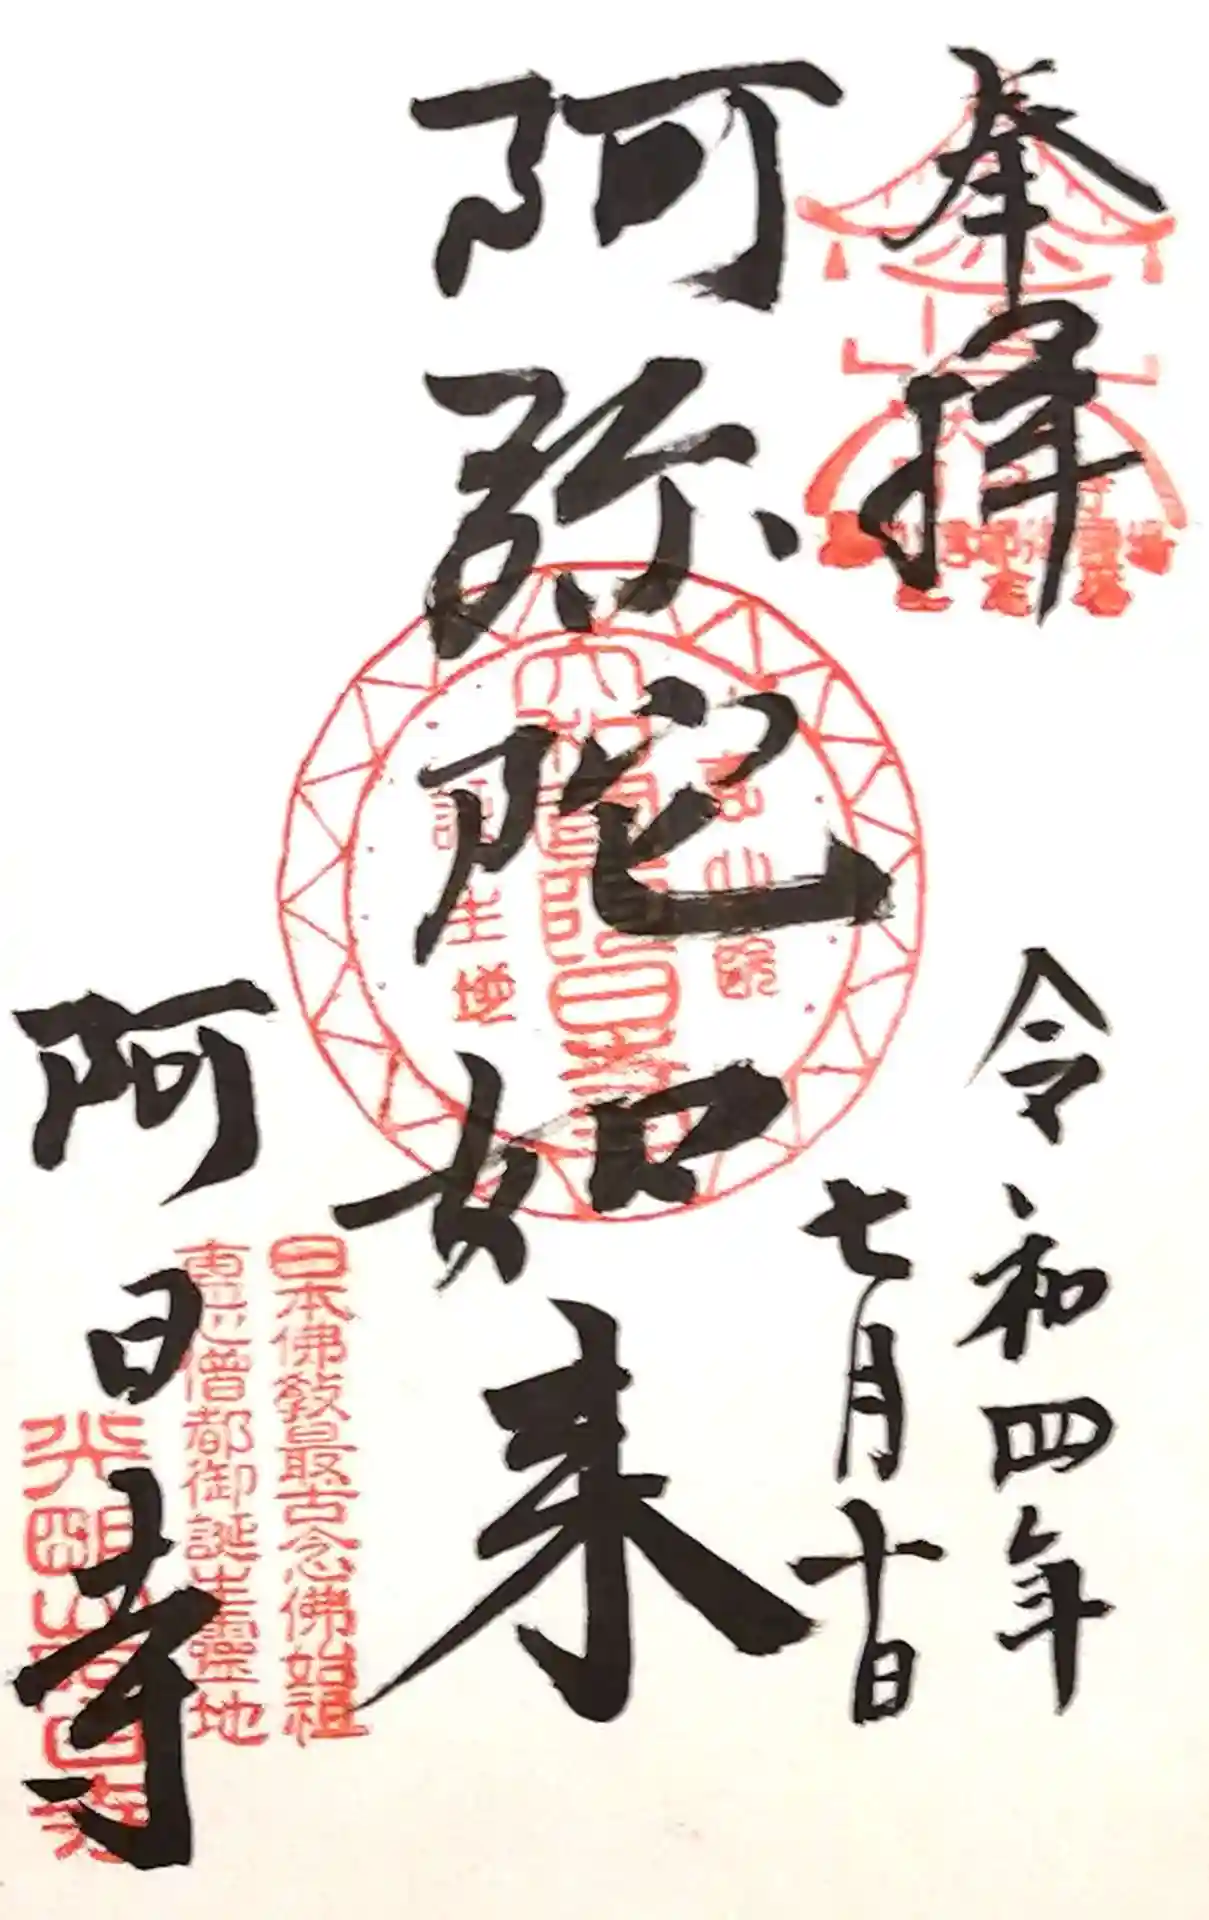 奉拝
令和四年
七月十日
阿弥陀如来
日本佛教最古念佛始祖
恵心僧都御誕生霊地
阿日寺
光明山阿日寺
誕生地